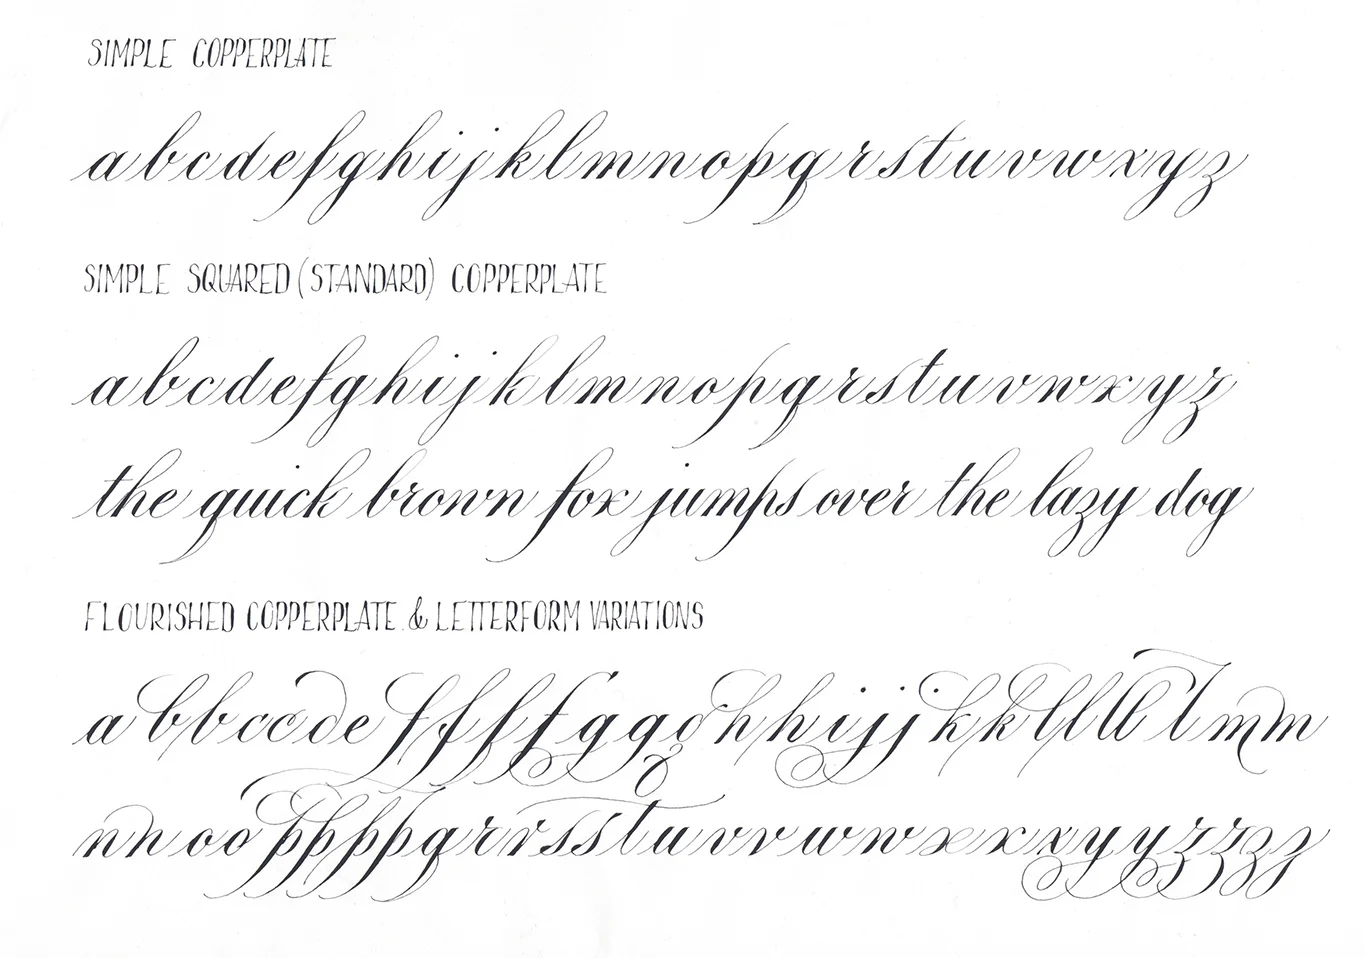 SIMPLE COPPERPLATE
abcdefghijklmnopqrstuvwxyz
SIMPLE SQUARED (STANDARD) COPPERPLATE
abcdefghijklmnopqrstuvwxyz
the quick brown fox jumps over the lazy dog
FLOURISHED COPPERPLATE & LETTERFORM VARIATIONS
abbcccdeffffggghhijjkklllllmm
nnooppppqrrssstuvvwwxxxyyzzzz